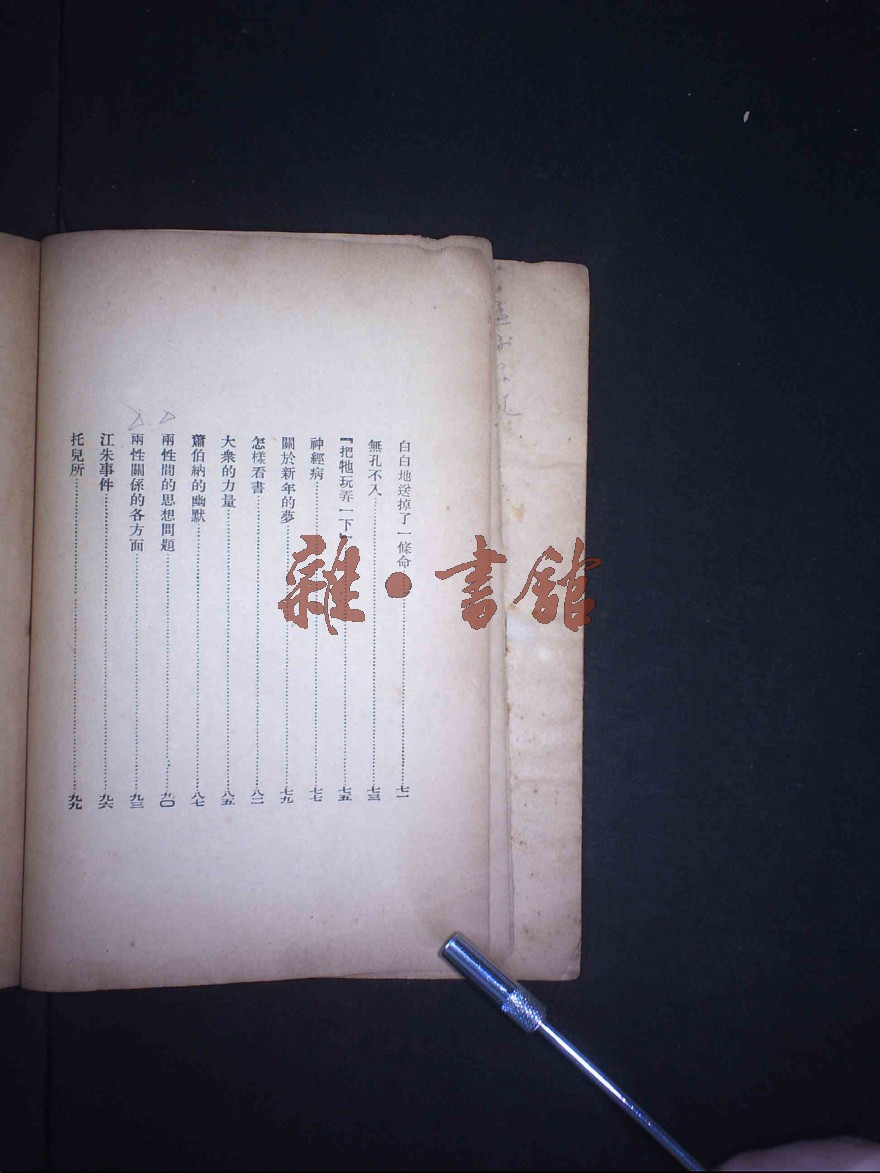 白白地送掉了一條命……七一
無孔不入……七三
「把牠玩弄一下」……七五
神經病……七七
關於新年的夢……七九
怎樣看書……八二
大衆的力量……八五
蕭伯納的幽默……八七
兩性間的思想問題……九〇
兩性關係的各方面……九三
江朱事件……九六
托兒所……九九
雜·書館